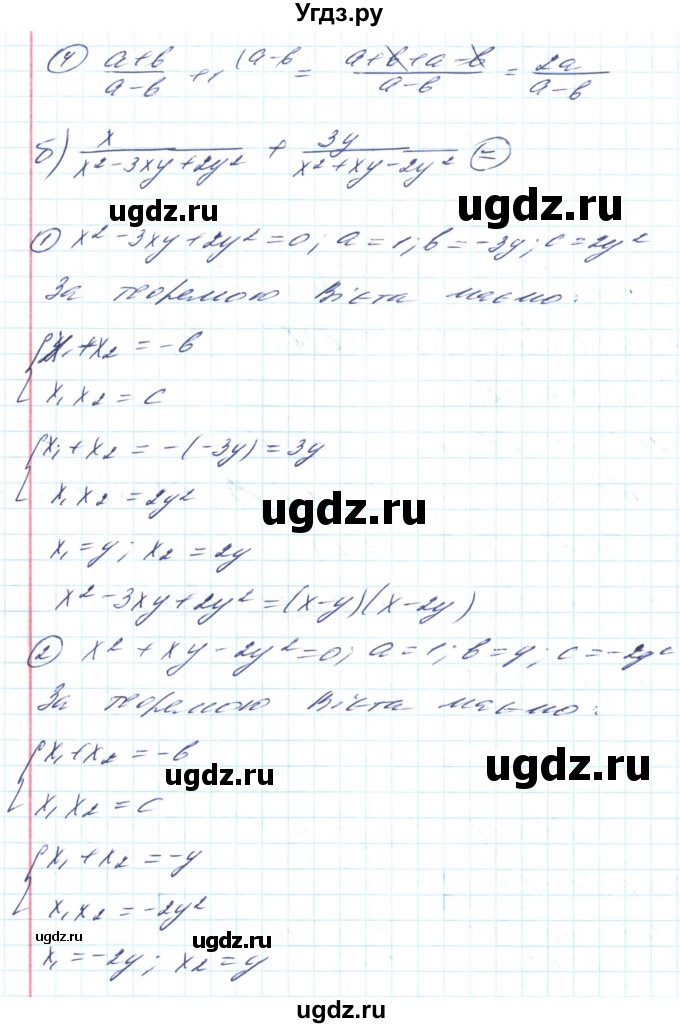 Угдз.ру
④ (a+b)/(a-b) + 1^(a-b = (a+b+a-b)/(a-b) = 2a/(a-b)
б) x/(x²-3xy+2y²) + 3y/(x²+xy-2y²) ⊜
ugdz.ru ugdz.ru
① x²-3xy+2y²=0; a=1; b=-3y; c=2y²
За теоремою Вієта маємо:
{x₁+x₂=-b
x₁x₂=c
{x₁+x₂=-(-3y)=3y
x₁x₂=2y²
ugdz.ru
x₁=y; x₂=2y
x²-3xy+2y²=(x-y)(x-2y)
② x²+xy-2y²=0; a=1; b=y; c=-2y²
За теоремою Вієта маємо:
{x₁+x₂=-b
ugdz.ru ugdz.ru
x₁x₂=c
{x₁+x₂=-y
x₁x₂=-2y²
ugdz.ru ugdz.ru
x₁=-2y; x₂=y
ugdz.ru